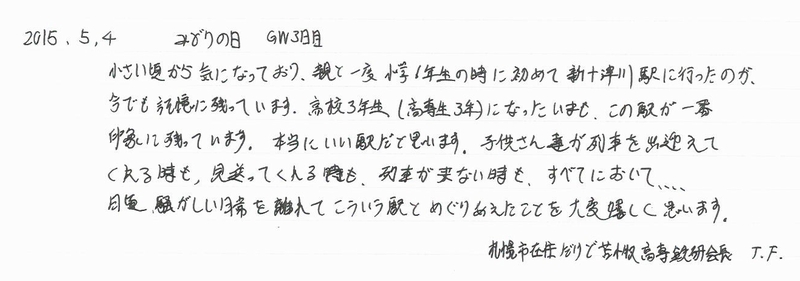 2015.5,4 みどりの日 GW3日目
小さい頃から気になっており、親と一度小学1年生の時に初めて新十津川駅に行ったのが、
今でも記憶に残っています。高校3年生(高専生3年)になったいまも、この駅が一番
印象に残っています。本当にいい駅だと思います。子供さん達が列車を出迎えて
くれる時も、見送ってくれる時も、列車が来ない時も、すべてにおいて....
日頃、騒がしい日常を離れてこういう駅とめぐりあえたことを大変嬉しく思います。
札幌市在住だけど苫小牧高専鉄研会長 T.F.